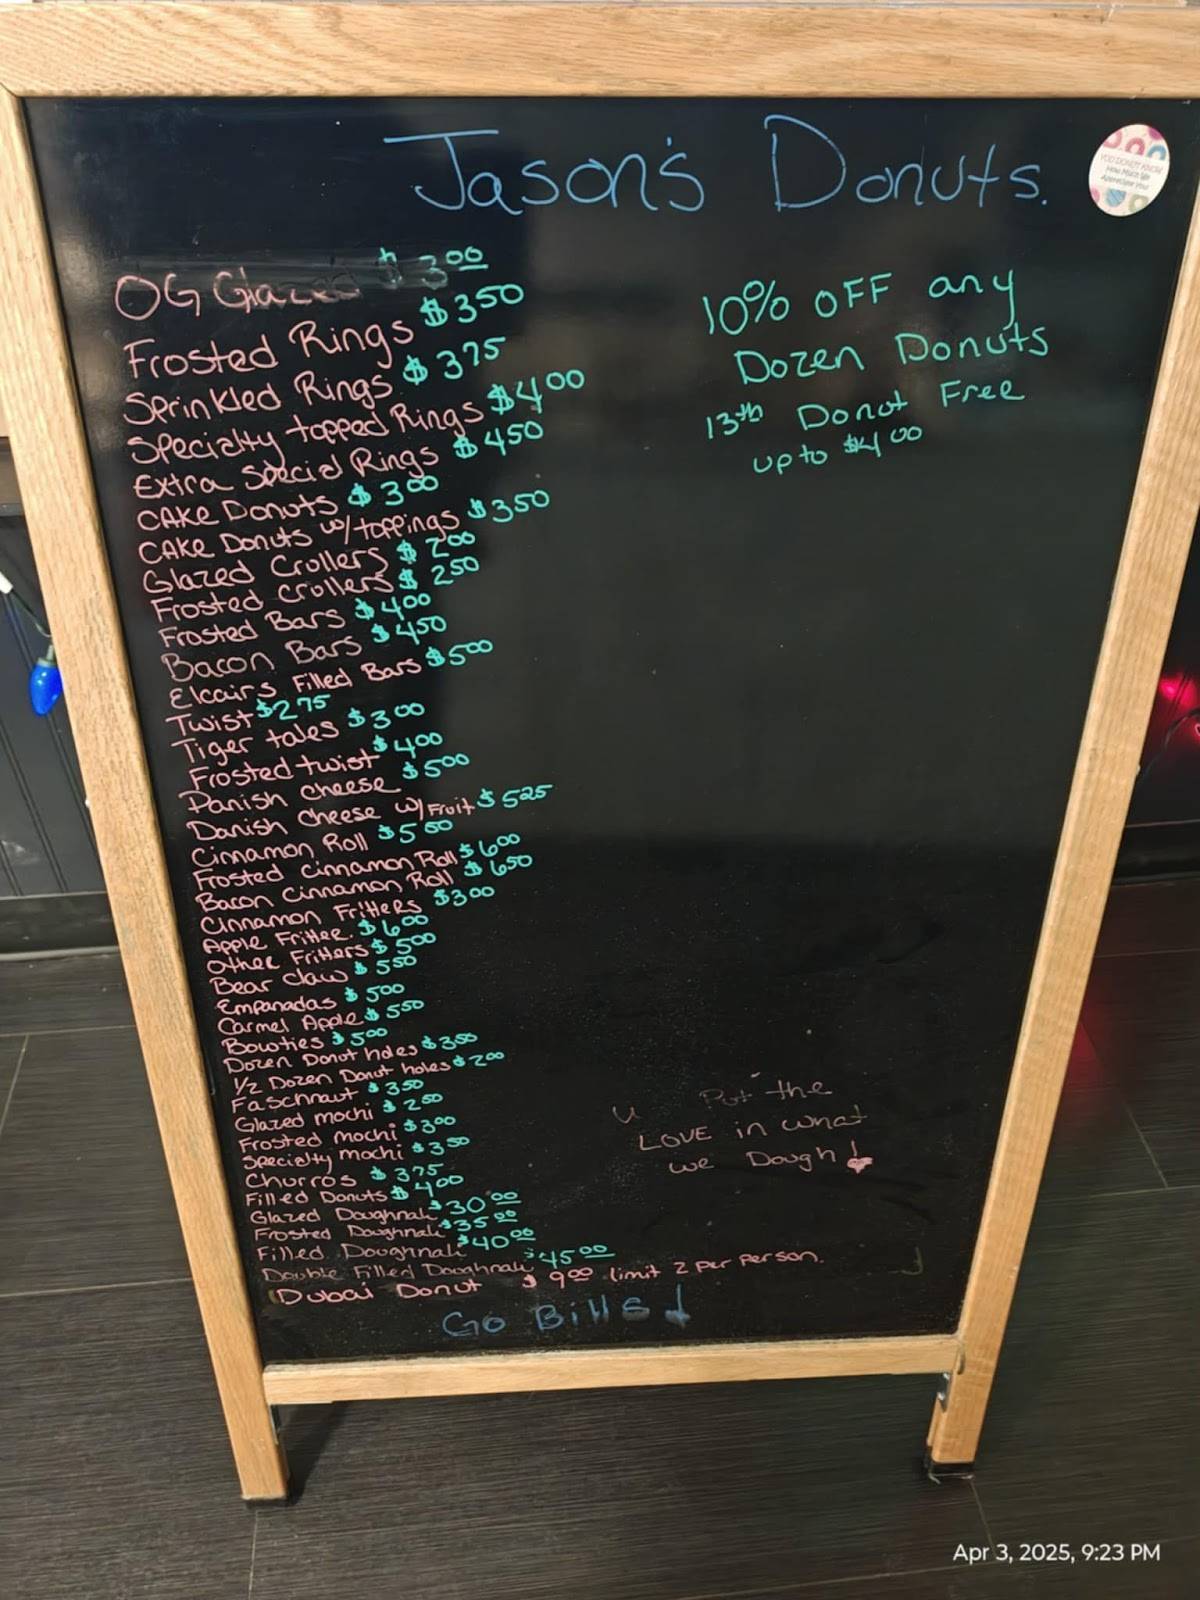 Jason's Donuts.
YOU DONUT KNOW
How Much We
Appreciate You!
OG Glazed $3.00
Frosted Rings $3.50
Sprinkled Rings $3.75
Specialty topped Rings $4.00
Extra Special Rings $4.50
CAKE Donuts $3.00
CAKE Donuts w/toppings $3.50
Glazed Crollers $2.00
Frosted Crollers $2.50
Frosted Bars $4.00
Bacon Bars $4.50
Elcairs Filled Bars $5.00
Twist $2.75
Tiger tales $3.00
Frosted twist $4.00
Danish Cheese $5.00
Danish Cheese w/Fruit $5.25
Cinnamon Roll $5.50
Frosted Cinnamon Roll $6.00
Bacon Cinnamon Roll $6.50
Cinnamon Fritters $3.00
Apple Fritter $6.00
Other Fritters $5.00
Bear Claw $5.50
Empanadas $5.00
Carmel Apple $5.50
Bowties $5.00
Dozen Donut holes $3.50
1/2 Dozen Donut holes $2.00
Faschnaut $3.50
Glazed mochi $2.50
Frosted mochi $3.00
Specialty mochi $3.50
Churros $3.75
Filled Donuts $4.00
Glazed Doughnah $30.00
Frosted Doughnah $35.00
Filled Doughnah $40.00
Double Filled Doughnah $45.00
Dubai Donut $9.00 limit 2 per person.
Go Bills!
10% OFF any
Dozen Donuts
13th Donut Free
up to $4.00
Put the
LOVE in what
we Dough!
Apr 3, 2025, 9:23 PM